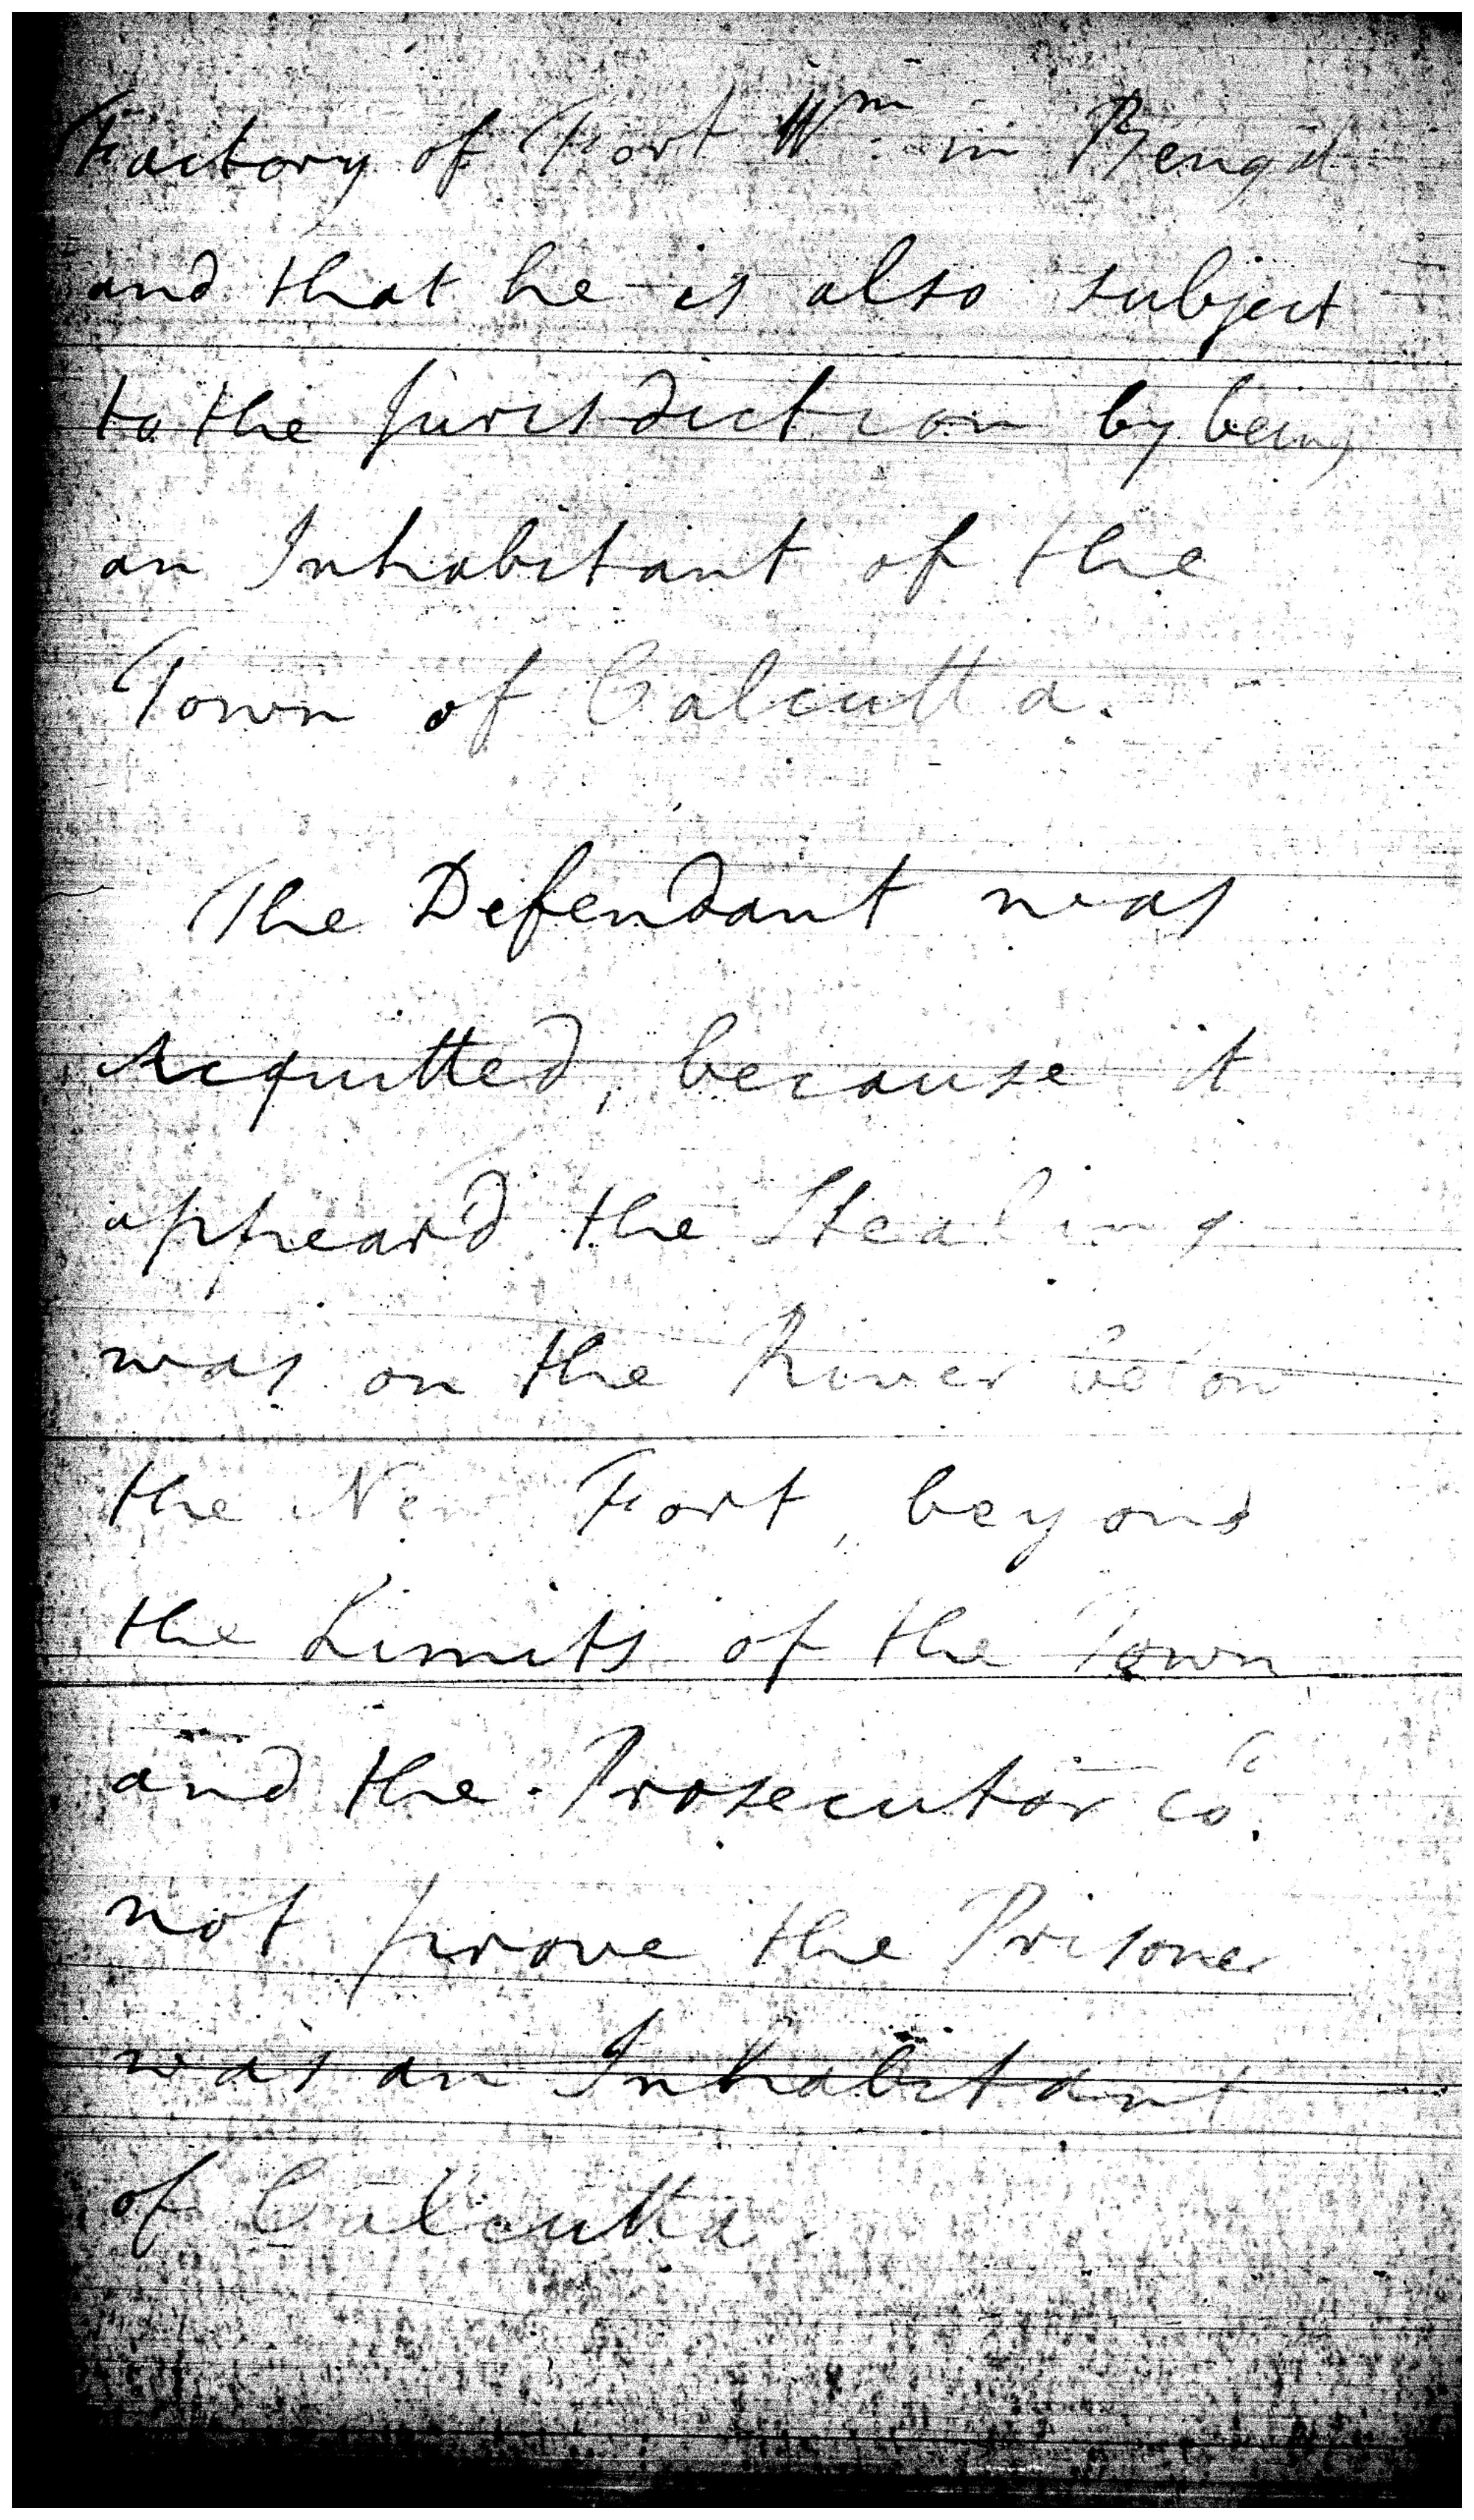 Factory of Fort Wm. in Bengal
and that he is also subject
to the Jurisdiction by being
an Inhabitant of the
Town of Calcutta.
The Defendant was
Acquitted, because it
appeard the Stealing
was on the River below
the New Fort, beyond
the Limits of the Town
and the Prosecutor cod.
not prove the Prisoner
was an Inhabitant
of Calcutta.